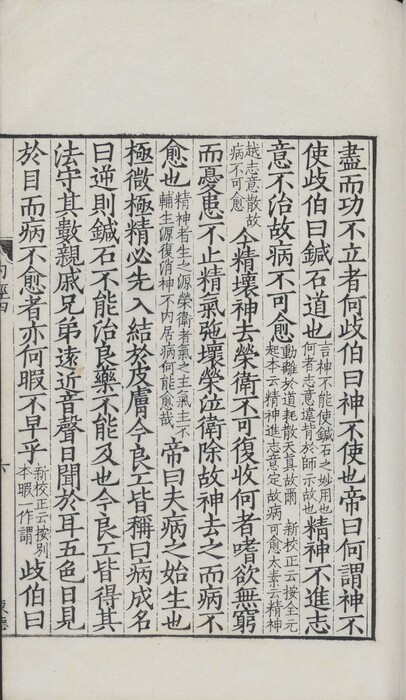 盡而功不立者何歧伯曰神不使也帝曰何謂神不
使歧伯曰鍼石道也言神不能使鍼石之妙用也何者志意違背於師示故也精神不進志
意不治故病不可愈動離於道耗散天真故爾 新校正云按全元起本云精神進志意定故病可愈太素云精神
越志意散故病不可愈今精壞神去榮衛不可復收何者嗜欲無窮
而憂患不止精氣弛壞榮泣衛除故神去之而病不
愈也精神者生之源榮衛者氣之主氣主不輔生源復消神不內居病何能愈哉帝曰夫病之始生也
極微極精必先入結於皮膚今良工皆稱曰病成名
曰逆則鍼石不能治良藥不能及也今良工皆得其
法守其數親戚兄弟遠近音聲日聞於耳五色日見
於目而病不愈者亦何暇不早乎新校正云按別本暇一作謂歧伯曰
內經四
六